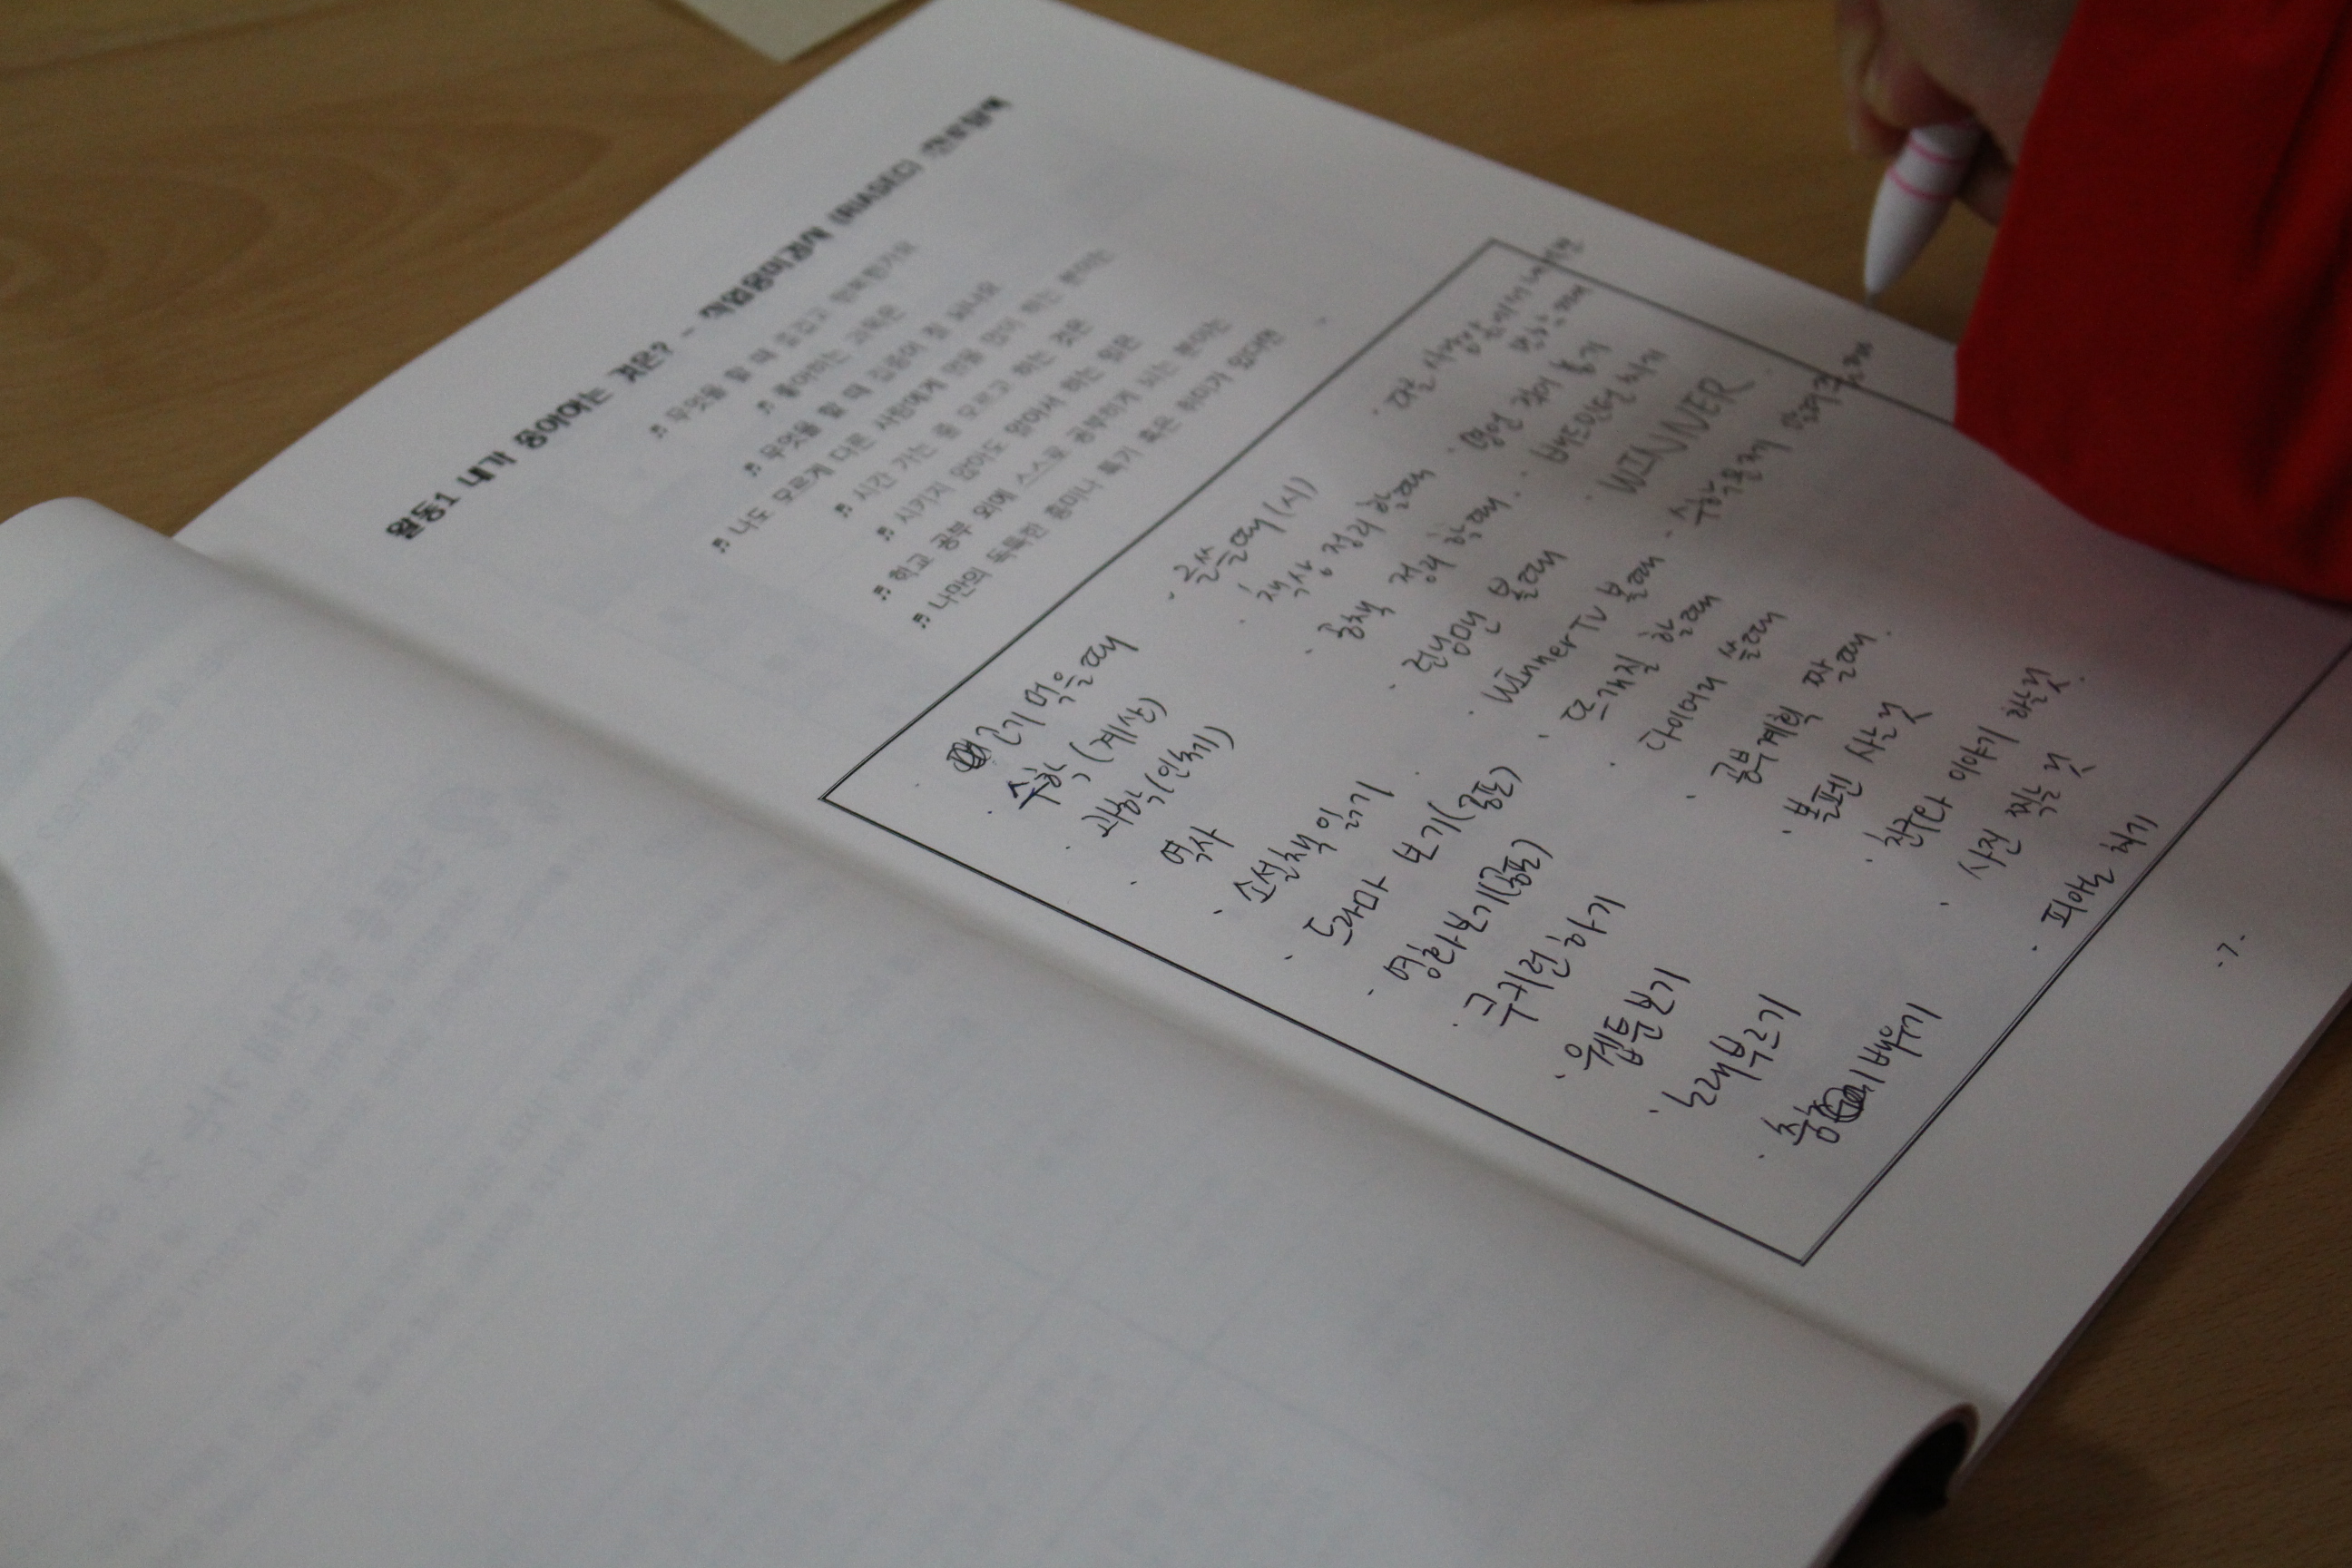 활동1 내가 좋아하는 것은? - 직업흥미검사 (RIASEC)
♬ 무엇을 할 때 즐겁고 행복한가요
♬ 좋아하는 과목은
♬ 무엇을 할 때 집중이 잘 되나요
♬ 나도 모르게 다른 사람에게 말을 많이 하는 분야는
♬ 시간 가는 줄 모르고 하는 것은
♬ 시키지 않아도 알아서 하는 일은
♬ 학교 공부 외에 스스로 공부하게 되는 분야는
♬ 나만의 독특한 흥미나 특기 혹은 취미가 있다면
고기 먹을때
· 수학 (계산)
· 과학 (암기)
· 역사
· 소설책 읽기
· 드라마 보기(공포)
· 영화보기(공포)
· 쿠키런하기
· 웹툰보기
· 노래부르기
· 춤 배우기
· 글쓸때 (시)
· 책상 정리 할때
· 정리 할때.
· 런닝맨 볼때
· WinnerTV 볼때
· 뜨개질 할때
· 다이어리 쓸때
· 공부계획 짤때.
· 볼펜 사는것
· 친구랑 이야기 하는것.
· 사진 찍는것
· 피아노 치기
· 배드민턴 하기
· WINNER
· 수학문제
-7-